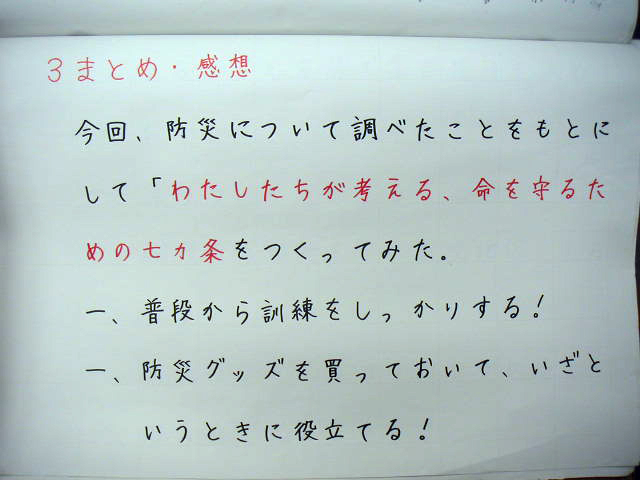 3まとめ・感想
今回、防災について調べたことをもとに
して「わたしたちが考える、命を守るた
めの七カ条をつくってみた。
一、普段から訓練をしっかりする！
一、防災グッズを買っておいて、いざと
いうときに役立てる！